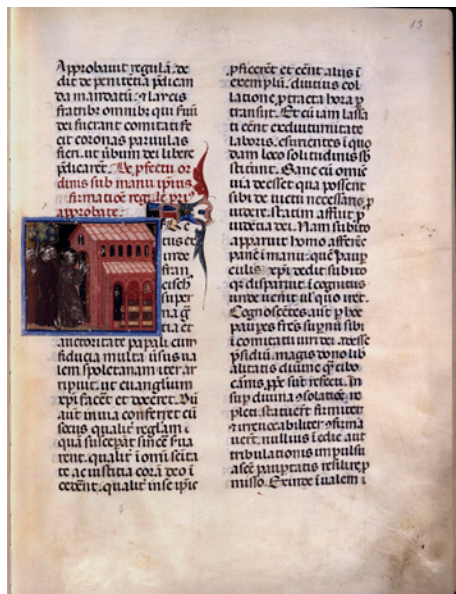 13
Approbauit regulã. de
dit de penitẽtia pdican
da mandatũ. ⁊ laycis
fratribꝰ omnibꝰ qui ſuũ
dei fuerant comitati fe
cit coronas paruulas
fieri. ut ũbum dei libere
pdicarẽt. De pfectu or
dinis ſub manu ip̃ius
⁊ firmatiõe regule priꝰ
approbate.
cus de
fran
ciſch
ſuper
na et
auctoritate papali. cum
fiducia multa ũſus ua
lem ſpoletanam iter ar
ripuit. ut euangliũm
xp̃i facẽt et docẽret. Dũ
aut in uia conferret cũ
ſociis qualit̃ reglam
quã ſuſcepãt ſincẽ ẽua
rent. qualit̃ ĩ omi ſcita
te ac iuſticia corã deo ĩ
cedẽnt. qualit̃ in ſe ip̃ic
ꝓficerẽt et eẽnt aliis ĩ
exemplũ. diutius col
latione ꝓtracta hora p
tranſiit. Et cũ iam laſſa
ti eẽnt ex diuturnitate
laboris. eſurientes ĩ quo
dam loco ſolitudinis ſb
ſtitẽunt. Sane cũ omnic
uia deeſſet qua poſſent
ſibi de uictu neceſſario p
uidere. ſtatim affuit p
uidẽtia dei. Nam ſubito
apparuit homo afferẽc
panẽ ĩ manu. quẽ paup
culis xp̃i dedit. ſubito
qꝫ diſparuit. ĩ cognituſ
unde uẽnit ul' quo iret.
Cognoſcẽtes aut̃ p hoc
paupes frẽs ſupnũ ſibi
ĩ comitatu uiri dei adeſſe
pſidiũ. magis dono lib
alitatis diuine qͣ cibo
carnis, ppe ſũt refecti. In
ſup diuina ꝯſolatiõe re
pleti. ſtatuẽrt firmiter
⁊ irreuocabiliter ꝯfirma
uẽrt. nullius ĩ edie aut
tribulationis impulſu
a ſcẽ paupẽtatis reſilire p
miſſo. Exinde ĩ ualem ĩ